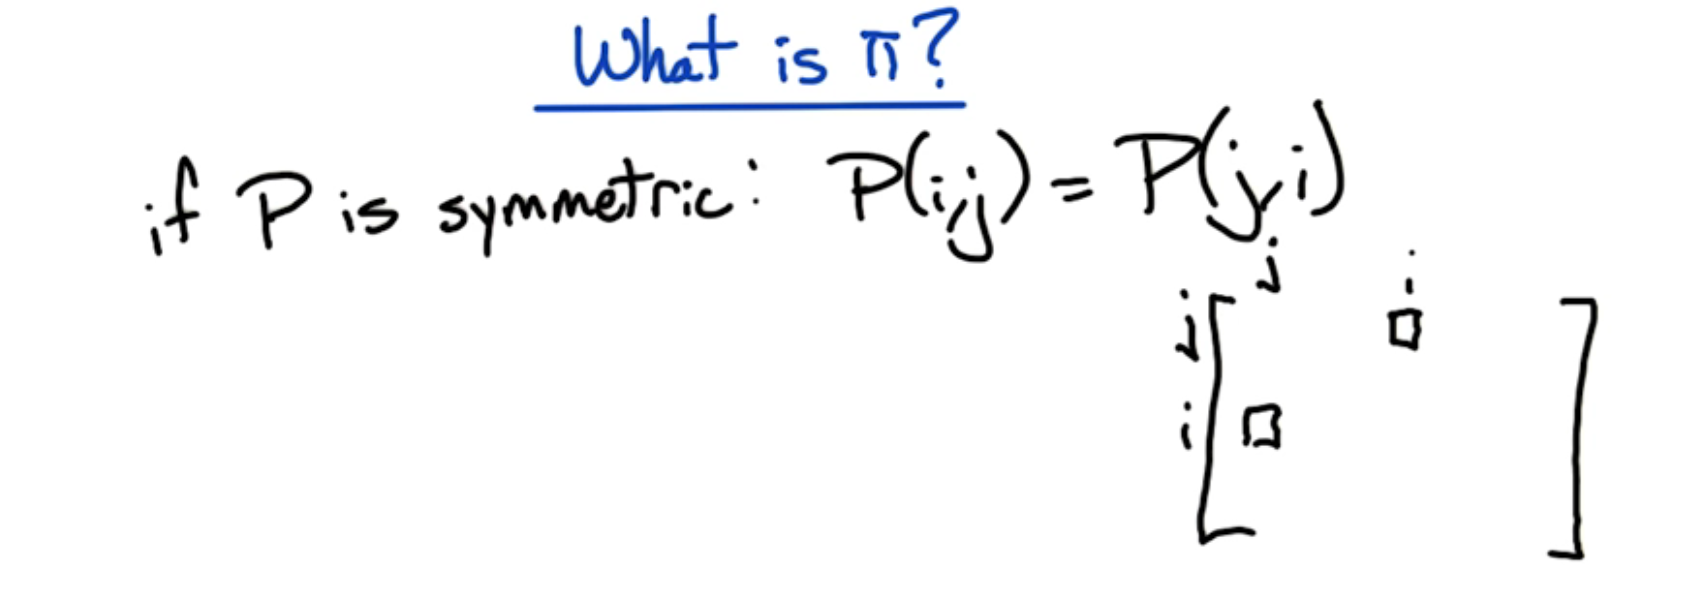 What is π?
if P is symmetric: P(i,j) = P(j,i)
j i
j
i